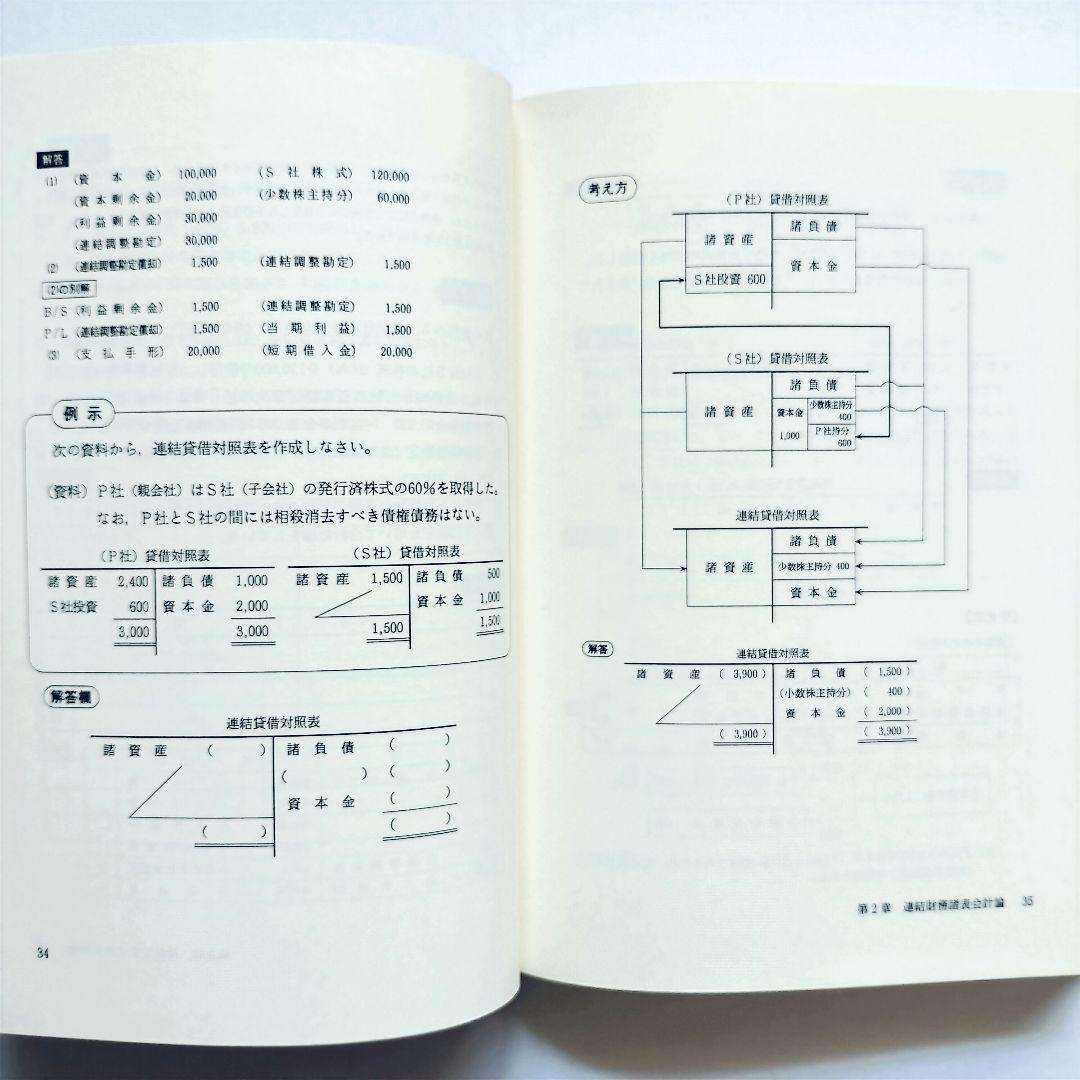 解答
(1) (資本金) 100,000 (S社株式) 120,000
(資本剰余金) 20,000 (少数株主持分) 60,000
(利益剰余金) 30,000
(連結調整勘定) 30,000
(2) (連結調整勘定償却) 1,500 (連結調整勘定) 1,500
(2)の別解
B/S (利益剰余金) 1,500 (連結調整勘定) 1,500
P/L (連結調整勘定償却) 1,500 (当期利益) 1,500
(3) (支払手形) 20,000 (短期借入金) 20,000
例示
次の資料から，連結貸借対照表を作成しなさい。
(資料) P社（親会社）はS社（子会社）の発行済株式の60%を取得した。
なお，P社とS社の間には相殺消去すべき債権債務はない。
(P社) 貸借対照表 (S社) 貸借対照表
諸資産 2,400 諸負債 1,000 諸資産 1,500 諸負債 500
S社投資 600 資本金 2,000 資本金 1,000
3,000 3,000 1,500 1,500
解答欄
連結貸借対照表
諸資産 ( ) 諸負債 ( )
( ) ( )
資本金 ( )
( ) ( )
34
考え方
(P社) 貸借対照表
諸資産 諸負債
S社投資 600 資本金
(S社) 貸借対照表
諸資産 諸負債
資本金 1,000 少数株主持分 400
P社持分 600
連結貸借対照表
諸資産 諸負債
少数株主持分 400
資本金
解答
連結貸借対照表
諸資産 ( 3,900 ) 諸負債 ( 1,500 )
(少数株主持分) ( 400 )
資本金 ( 2,000 )
( 3,900 ) ( 3,900 )
第2章 連結財務諸表会計論 35